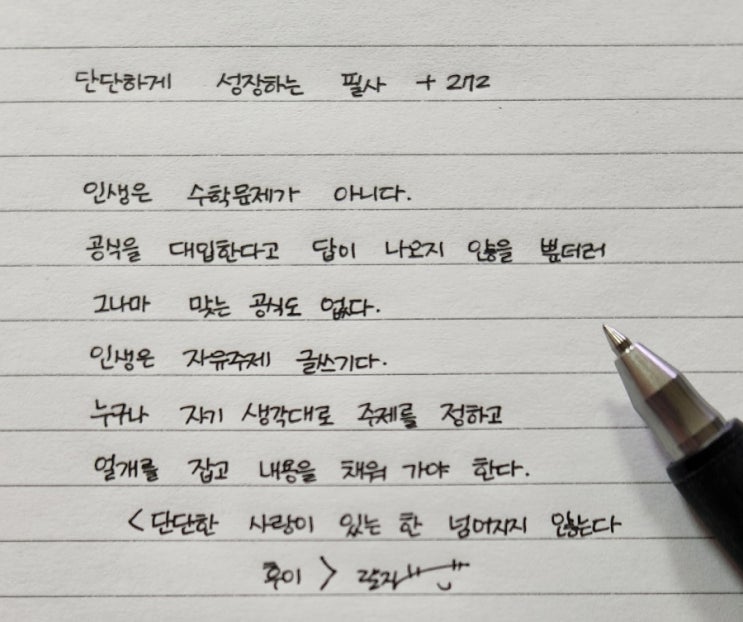 단단하게 성장하는 필사 + 272
인생은 수학문제가 아니다.
공식을 대입한다고 답이 나오지 않을 뿐더러
그나마 맞는 공식도 없다.
인생은 자유주제 글쓰기다.
누구나 자기 생각대로 주제를 정하고
얼개를 잡고 내용을 채워 가야 한다.
<단단한 사랑이 있는 한 넘어지지 않는다
후이>